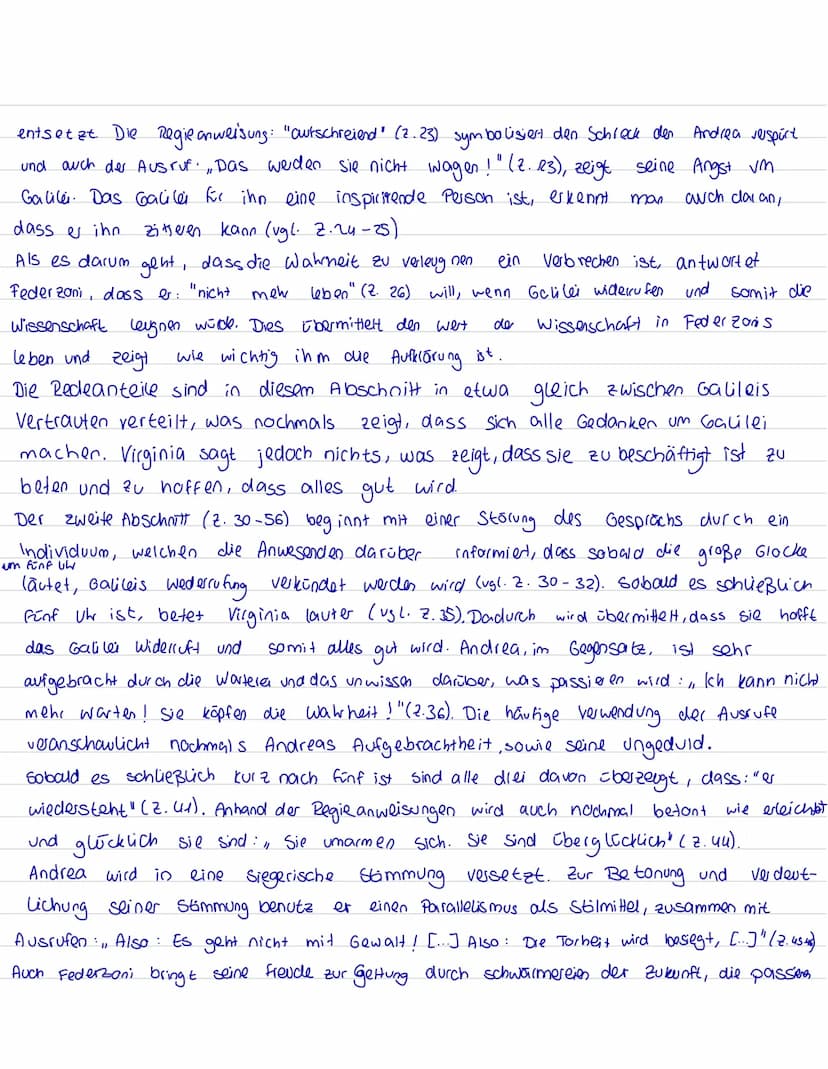 entsetzt. Die Regieanweisung: "aufschreiend" (Z.23) symbolisiert den Schreck den Andrea verspürt
und auch der Ausruf: „Das werden Sie nicht wagen!" (Z. 23), zeigt seine Angst um
Galilei. Das Galilei für ihn eine inspirirende Person ist, erkennt man auch daran,
dass er ihn zitieren kann (vgl. Z.24-25)
Als es darum geht, dass die Wahrheit zu verleugnen ein Verbrechen ist, antwortet
Federzoni, dass er: "nicht mehr leben" (Z. 26) will, wenn Galilei widerrufen und somit die
Wissenschaft leugnen würde. Dies übermittelt den Wert der Wissenschaft in Federzonis
Leben und zeigt wie wichtig ihm die Aufklärung ist.
Die Redeanteile sind in diesem Abschnitt in etwa gleich zwischen Galileis
Vertrauten verteilt, was nochmals zeigt, dass sich alle Gedanken um Galilei
machen. Virginia sagt jedoch nichts, was zeigt, dass sie zu beschäftigt ist zu
beten und zu hoffen, dass alles gut wird.
Der zweite Abschnitt (Z. 30-56) beginnt mit einer Störung des Gesprächs durch ein
Individuum, welchen die Anwesenden darüber informiert, dass sobald die große Glocke
um fünf Uhr
läutet, Galileis Wederrufung verkündet werden wird (vgl. Z. 30-32). Sobald es schließlich
Fünf Uhr ist, betet Virginia lauter (vgl. Z.35). Dadurch wird übermittelt, dass sie hofft
das Galilei Widerruft und somit alles gut wird. Andrea, im Gegensatz, ist sehr
aufgebracht durch die Warterei und das unwissen darüber, was passieren wird: „Ich kann nicht
mehr warten! Sie köpfen die Wahrheit!" (Z.36). Die häufige Verwendung der Ausrufe
veranschaulicht nochmals Andreas Aufgebrachtheit, sowie seine Ungeduld.
Sobald es schließlich kurz nach fünf ist sind alle drei davon überzeugt, dass: "er
wiedersteht" (Z. 41). Anhand der Regieanweisungen wird auch nochmal betont wie erleichtert
und glücklich sie sind: „Sie umarmen sich. Sie sind überglücklich" (Z. 44).
Andrea wird in eine siegerische Stimmung versetzt. Zur Betonung und Verdeut-
lichung seiner Stimmung benutz er einen Parallelismus als Stilmittel, zusammen mit
Ausrufen: „Also: Es geht nicht mit Gewalt! [...] Also: Die Torheit wird besiegt, [...]"
Auch Federzoni bringt seine Freude zur Geltung durch schwärmereien der Zukunft, die passen